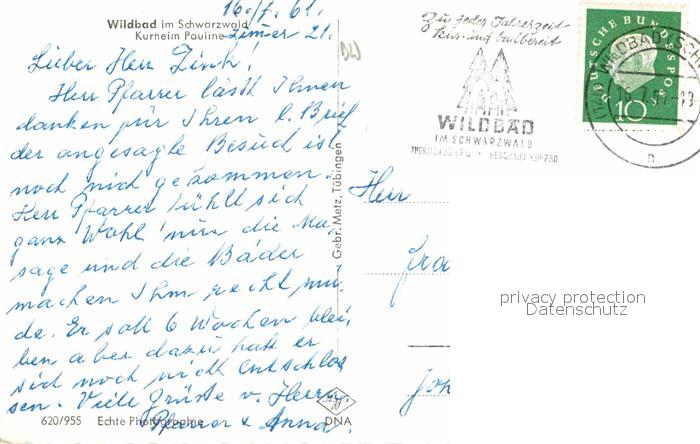 16./7. 61.
Wildbad im Schwarzwald
Kurheim Pauline Zimer 21.
Lieber Herr Zink!
Herr Pfarrer lässt Ihnen
danken für Ihren l. Brief
der angesagte Besuch ist
noch nicht gekommen.
Herr Pfarrer fühlt sich
ganz Wohl nur die Ma,
sage und die Bäder
machen Ihm recht mü,
de. Er soll 6 Wochen blei,
ben aber dazu hatt er
sich noch nicht entschlos
sen. Viele Grüsse v. Herrn
Pfarrer & Anna.
620/955 Echte Photographie
DNA
Gebr. Metz, Tübingen
Zu jeder Jahreszeit
kur- und badbereit
WILDBAD
IM SCHWARZWALD
DEUTSCHE BUNDESPOST
10
WILDBAD (SCH
n
Herr
privacy protection
Datenschutz